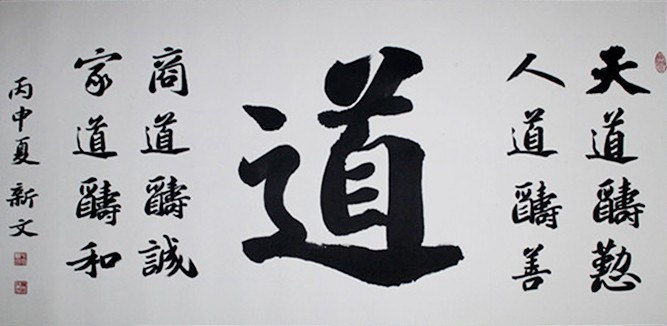 天道醻懃
人道醻善
道
商道醻誠
家道醻和
丙申夏 新文